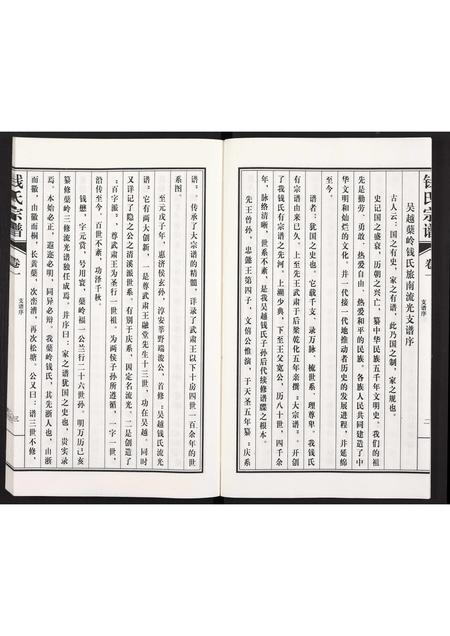 钱氏宗谱
卷一
支谱序
二
吴越蘖岭钱氏旅南流光支谱序
古人云：国之有史，家之有谱，此乃国之制，家之规也。
史记国之盛衰，历朝之兴亡，纂中华民族五千年文明史。我们的祖
先是勤劳、勇敢、热爱自由、热爱和平的民族。各族人民共同建造了中
华文明和灿烂的文化，并一代接一代地推动者历史的发展进程，并延绵
至今。
谱者：犹国之史也。它载千支、录万脉、梳世系、理尊卑。我钱氏
有宗谱由来已久，上至先王武肃于后梁乾化五年亲撰“大宗谱”。开创
了我钱氏有宗谱之先河，上溯少典，下至王父宽公，历八十世，四千余
年，脉络清晰，世系不紊，是我吴越钱氏子孙后代续修谱牒之根本。
先王曾孙，忠懿王第四子，文僖公惟演，于天圣五年纂“庆系
谱”，传承了大宗谱的精髓，详录了武肃王以下十房四世一百余年的世
系图。
至元戊子年，惠济侯玄孙，淳安莘野端浚公，首修“吴越钱氏流光
谱”。它有两大创新，一是尊武肃王融堂先生十三世，功在吴越。同时
又详记了隐之公之清溪派世系，有别于庆系，因定名流光。二是创造了
“百字派”，尊武肃王为圣行一世祖，为两侯子孙所遵循，一字一世，
沿传至今，百世不紊，功泽千秋。
钱懋，字元赏，号用寰，蘖岭福一公兰行二十六世孙，明万历己亥
纂修蘖岭三修流光谱独任成焉。并序曰：家之谱犹国之史也，贵实录
焉。本始必正，遐迩必明，同异必辩。我蘖岭钱氏，其先浙人也，由浙
而徽，由徽而桐，长黄蘖，次峦清，再次松塘。公又曰：谱三世不修，
钱氏宗谱
卷一
支谱序